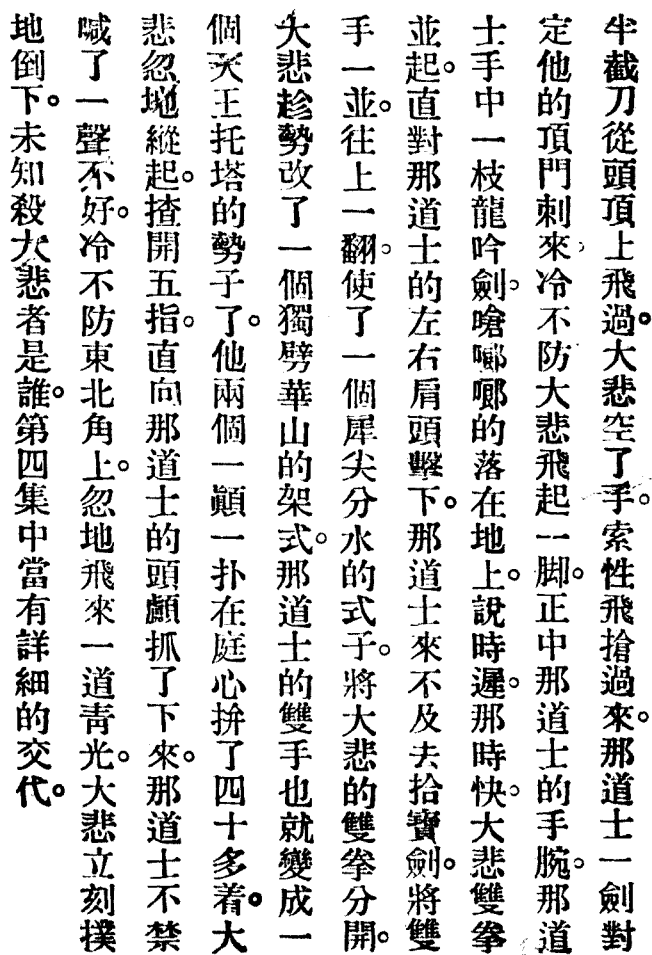 半截刀從頭頂上飛過。大悲空了手。索性飛搶過來。那道士一劍對
定他的頂門刺來。冷不防大悲飛起一脚。正中那道士的手腕。那道
士手中一枝龍吟劍。嗆啷啷的落在地上。說時遲。那時快。大悲雙拳
並起。直對那道士的左右肩頭擊下。那道士來不及去拾寶劍。將雙
手一並。往上一翻。使了一個犀尖分水的式子。將大悲的雙拳分開。
大悲趁勢改了一個獨劈華山的架式。那道士的雙手也就變成一
個天王托塔的勢子了。他兩個一顛一扑在庭心拚了四十多着。大
悲忽地縱起。揸開五指。直向那道士的頭顱抓了下來。那道士不禁
喊了一聲不好。冷不防東北角上。忽地飛來一道靑光。大悲立刻撲
地倒下。未知殺大悲者是誰。第四集中當有詳細的交代。